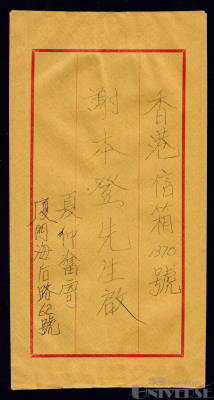 香港信箱1370號
謝本登先生啟
夏仲奮寄
廈門海后路62號
UNIVERSE